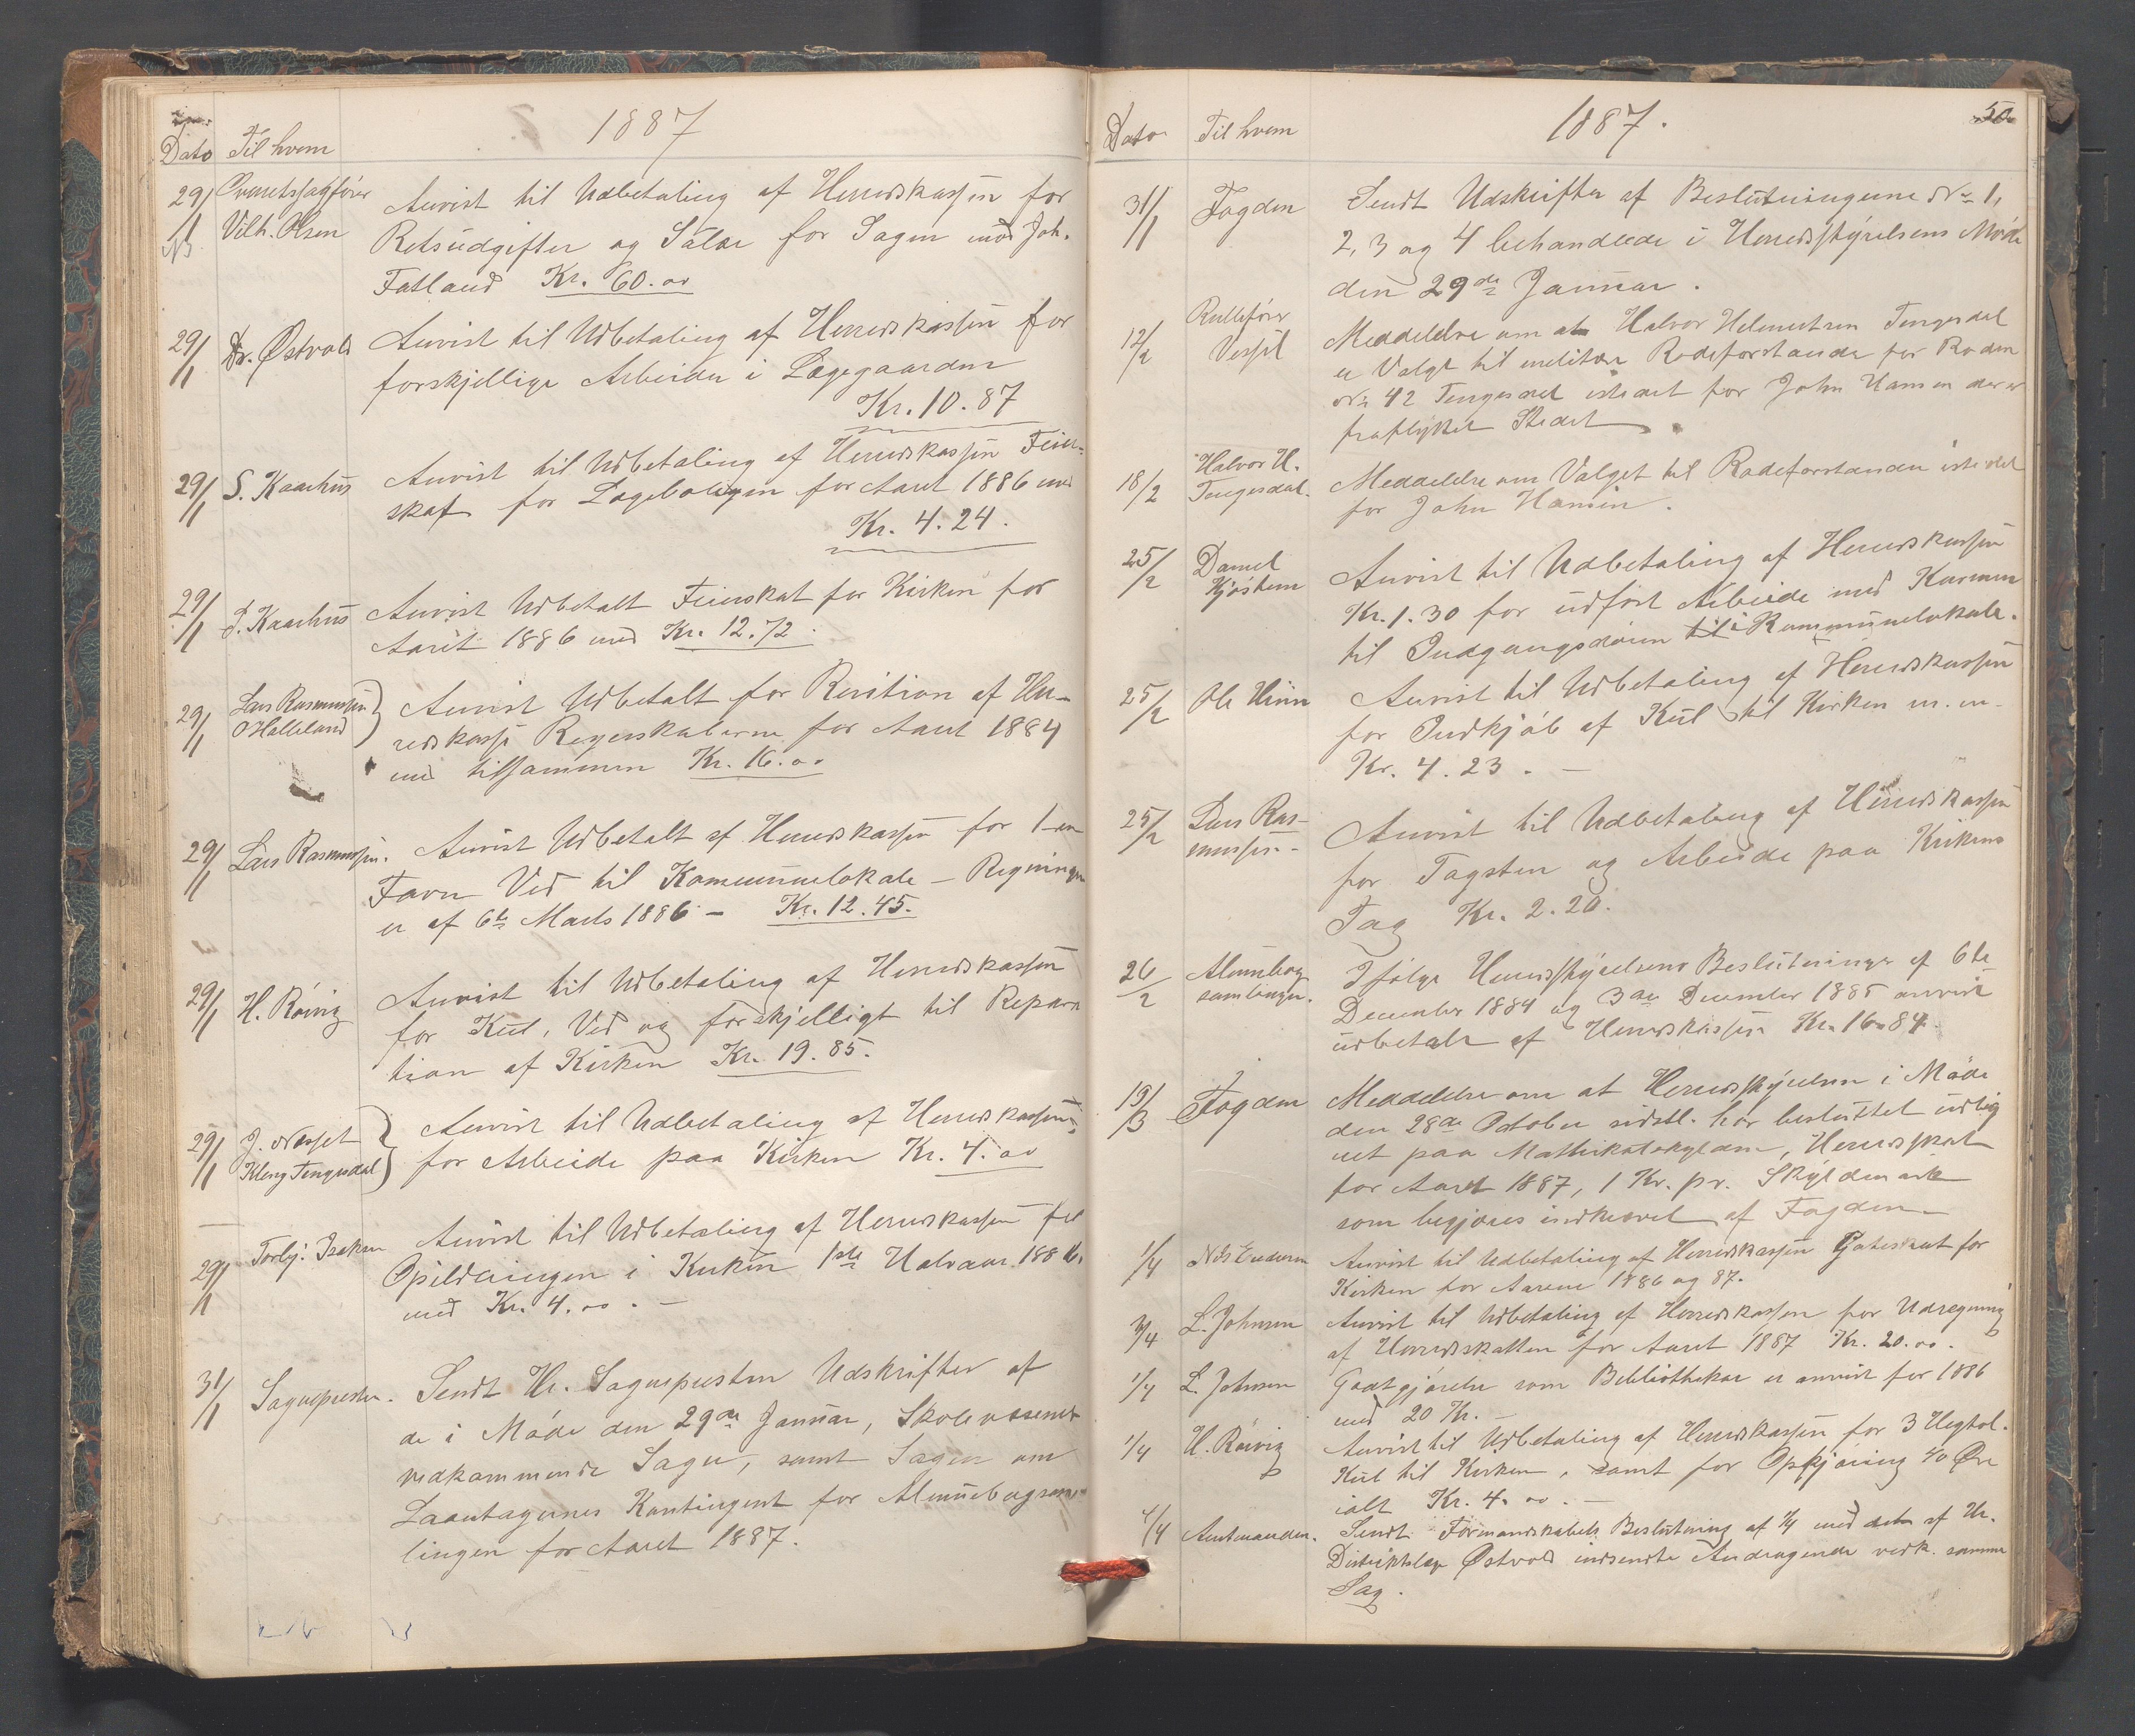 1887
Dato Til hvem
29/1 Overretssagfører Vilh. Olsen Anvist til Udbetaling af Herredskassen for
Retsudgifter og Salær for Sagen mod Joh.
Fatland Kr. 60.00
29/1 Dr. Østvold Anvist til Udbetaling af Herredskassen for
forskjellige Arbeider i Lægegaarden
Kr. 10.87
29/1 S. Kaarhus Anvist til Udbetaling af Herredskassen Feier-
skat for Lægeboligen for Aaret 1886 med
Kr. 4.24.
29/1 S. Kaarhus Anvist Udbetalt Feierskat for Kirken for
Aaret 1886 med Kr. 12.72.
29/1 Lars Rasmussen O Halleland Anvist Udbetalt for Revision af Her-
redskasse Regnskaberne for Aaret 1884
med tilsammen Kr. 16.00
29/1 Lars Rasmussen. Anvist Udbetalt af Herredskassen for 1 en
Favn Ved til Kommunelokale – Regningen
er af 6te Marts 1886 – Kr. 12.45.
29/1 H. Röiviz Anvist til Udbetaling af Herredskassen
for Kul, Ved og forskjelligt til Repara
tion af Kirken Kr. 19.85.
29/1 J. Nesset Kleng Tengesdal Anvist til Udbetaling af Herredskassen
for Arbeide paa Kirken Kr. 4.00
29/1 Torbj. Isaksen Anvist til Udbetaling af Herredskassen for
Opildningen i Kirken 1ste Halvaar 1886.
med Kr. 4.00. –
31/1 Sognepresten. Sendt Hr. Sognepresten Udskrifter af
de i Møde den 29de Januar, Skolevæsenet
vedkommende Sager, samt Sagen om
Laantagernes Kontingent for Almuebogsam-
lingen for Aaret 1887.
1887.
50
Dato Til hvem
31/1 Fogden Sendt Udskrifter af Beslutningerne No 1,
2, 3 og 4 behandlede i Herredsstyrelsens Møde
den 29de Januar.
12/2 Rullefører Vessel Meddelelse om at Halvor Helmichsen Tengesdal
er Valgt til militær Rodeforstander for Roden
No 42 Tengesdal istedet for John Hansen der er
fraflyttet Stedet
18/2 Halvor H. Tengesdal. Meddelelse om Valget til Rodeforstander istedet
for John Hansen.
25/2 Daniel Kjøshem Anvist til Udbetaling af Herredskassen
Kr. 1.30 for udført Arbeide med Karmen
til Indgangsdøren til Kommunelokale.
25/2 Ole Hinn Anvist til Udbetaling af Herredskassen
for Indkjøb af Kul til Kirken m.m.
Kr. 4.23. –
25/2 Lars Ras-
mussen – Anvist til Udbetaling af Herredskassen
for Tagsten og Arbeide paa Kirkens
Tag Kr. 2.20.
26/2 Almuebog samlingen. Ifølge Herredsstyrelsens Beslutninger af 6te
December 1884 og 3de December 1885 anvist
udbetalt af Herredskassen Kr. 16.84
19/3 Fogden Meddelelse om at Herredsstyrelsen i Møde
den 28de October sidstl. har besluttet udlig
net paa Matrikulskylden, Herredsskat
for Aaret 1887, 1 Kr. pr. Skyldmark
som begjæres indkrævet af Fogden –
1/4 Nils Endresen Anvist til Udbetaling af Herredskassen for
Kirken for Aarene 1886 og 87.
1/4 L. Johnsen Anvist til Udbetaling af Herredskassen for Udregning
af Herredsskatten for Aaret 1887 Kr. 20.00.
1/4 L. Johnsen Godtgjørelse som Bibliothekar er anvist for 1886
med 20 Kr. –
1/4 H. Röiviz Anvist til Udbetaling af Herredskassen for 3 Hegtol.
Kul til Kirken, samt for Opkjøring 40 Øre
ialt Kr. 4.00. –
4/4 Amtmanden. Sendt Formandskabets Beslutning af 1/4 med det af Hr.
Distriktslæge Østvold indsendte Andragende vedk. samme
Sag.